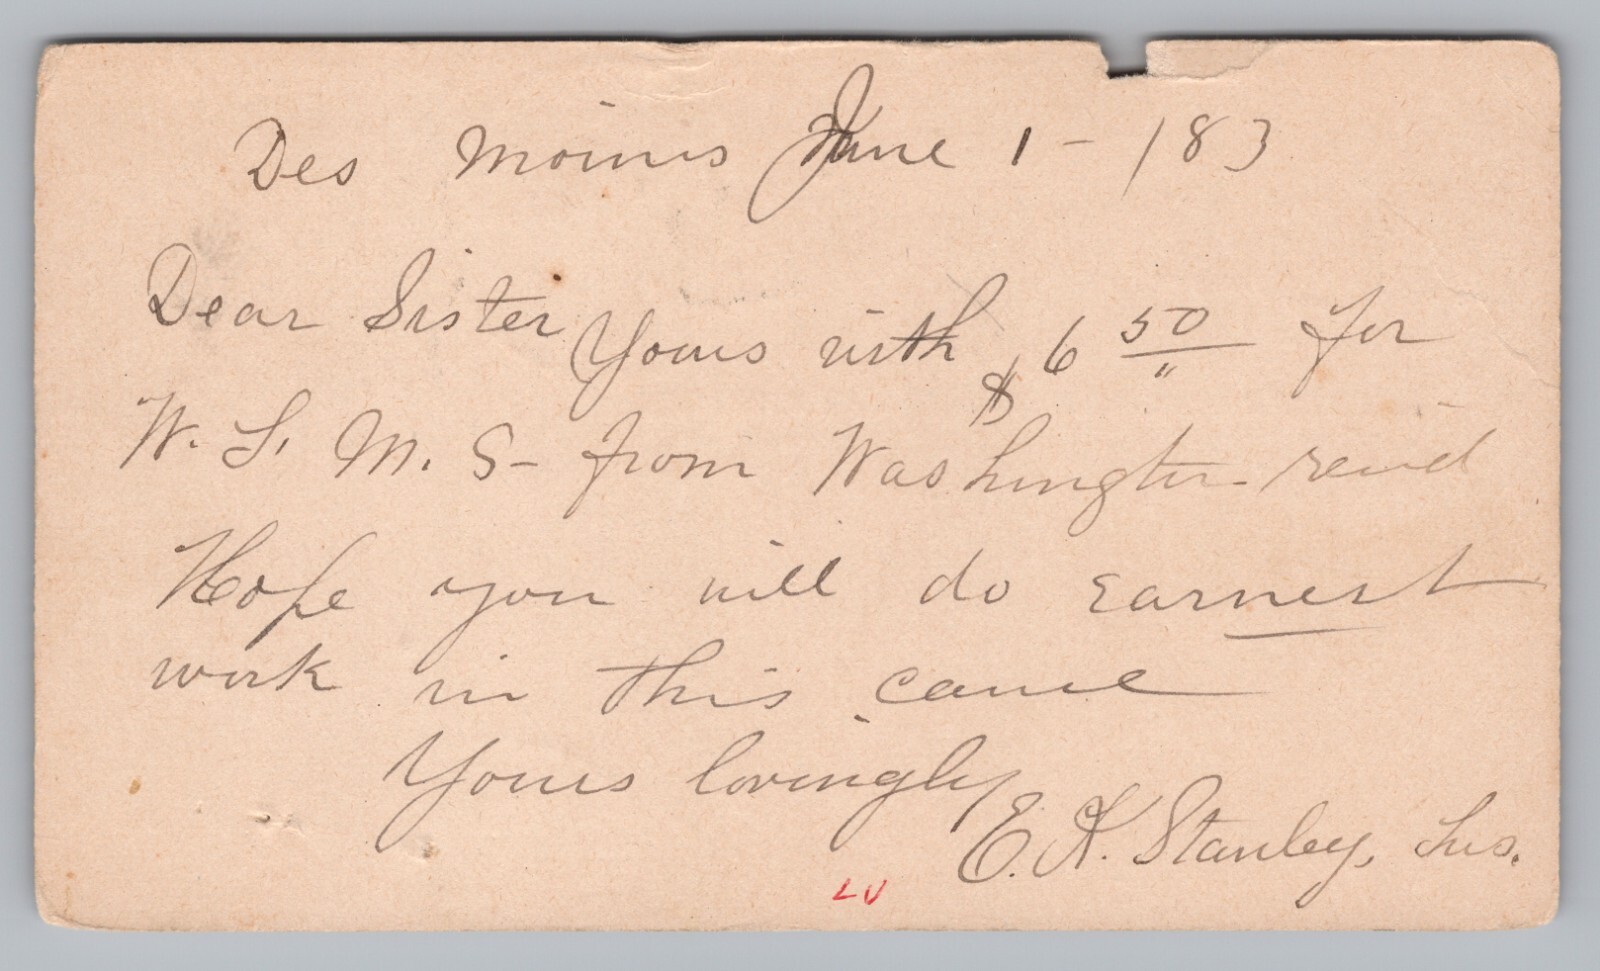 Des Moines June 1 - 183
Dear Sister Yours with $6 50/" for
W. F. M. S - from Washington rec'd
Hope you will do earnest
work in this cause
Yours lovingly
E. K. Stanley, Tres.
LV